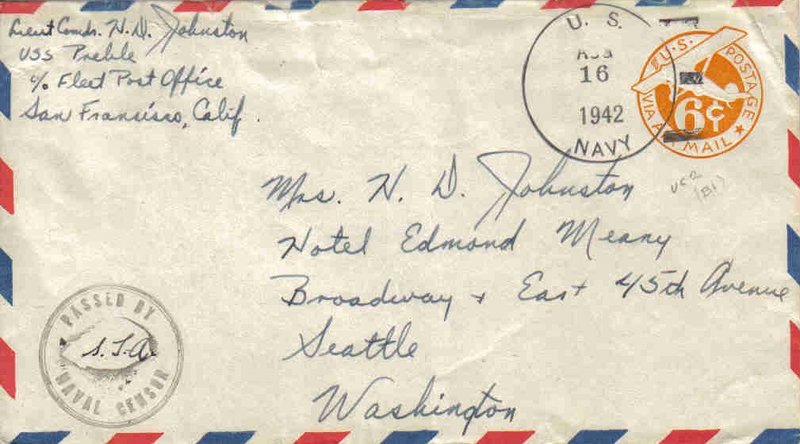 Lieut Comdr. N. D. Johnston
USS Preble
c/o Fleet Post Office
San Francisco, Calif.
U. S.
AUG
16
1942
NAVY
U.S. POSTAGE
6¢
VIA AIR MAIL
Mrs. N. D. Johnston
Hotel Edmond Meany
Broadway + East 45th Avenue
Seattle
Washington
PASSED BY
S.J.A.
NAVAL CENSOR